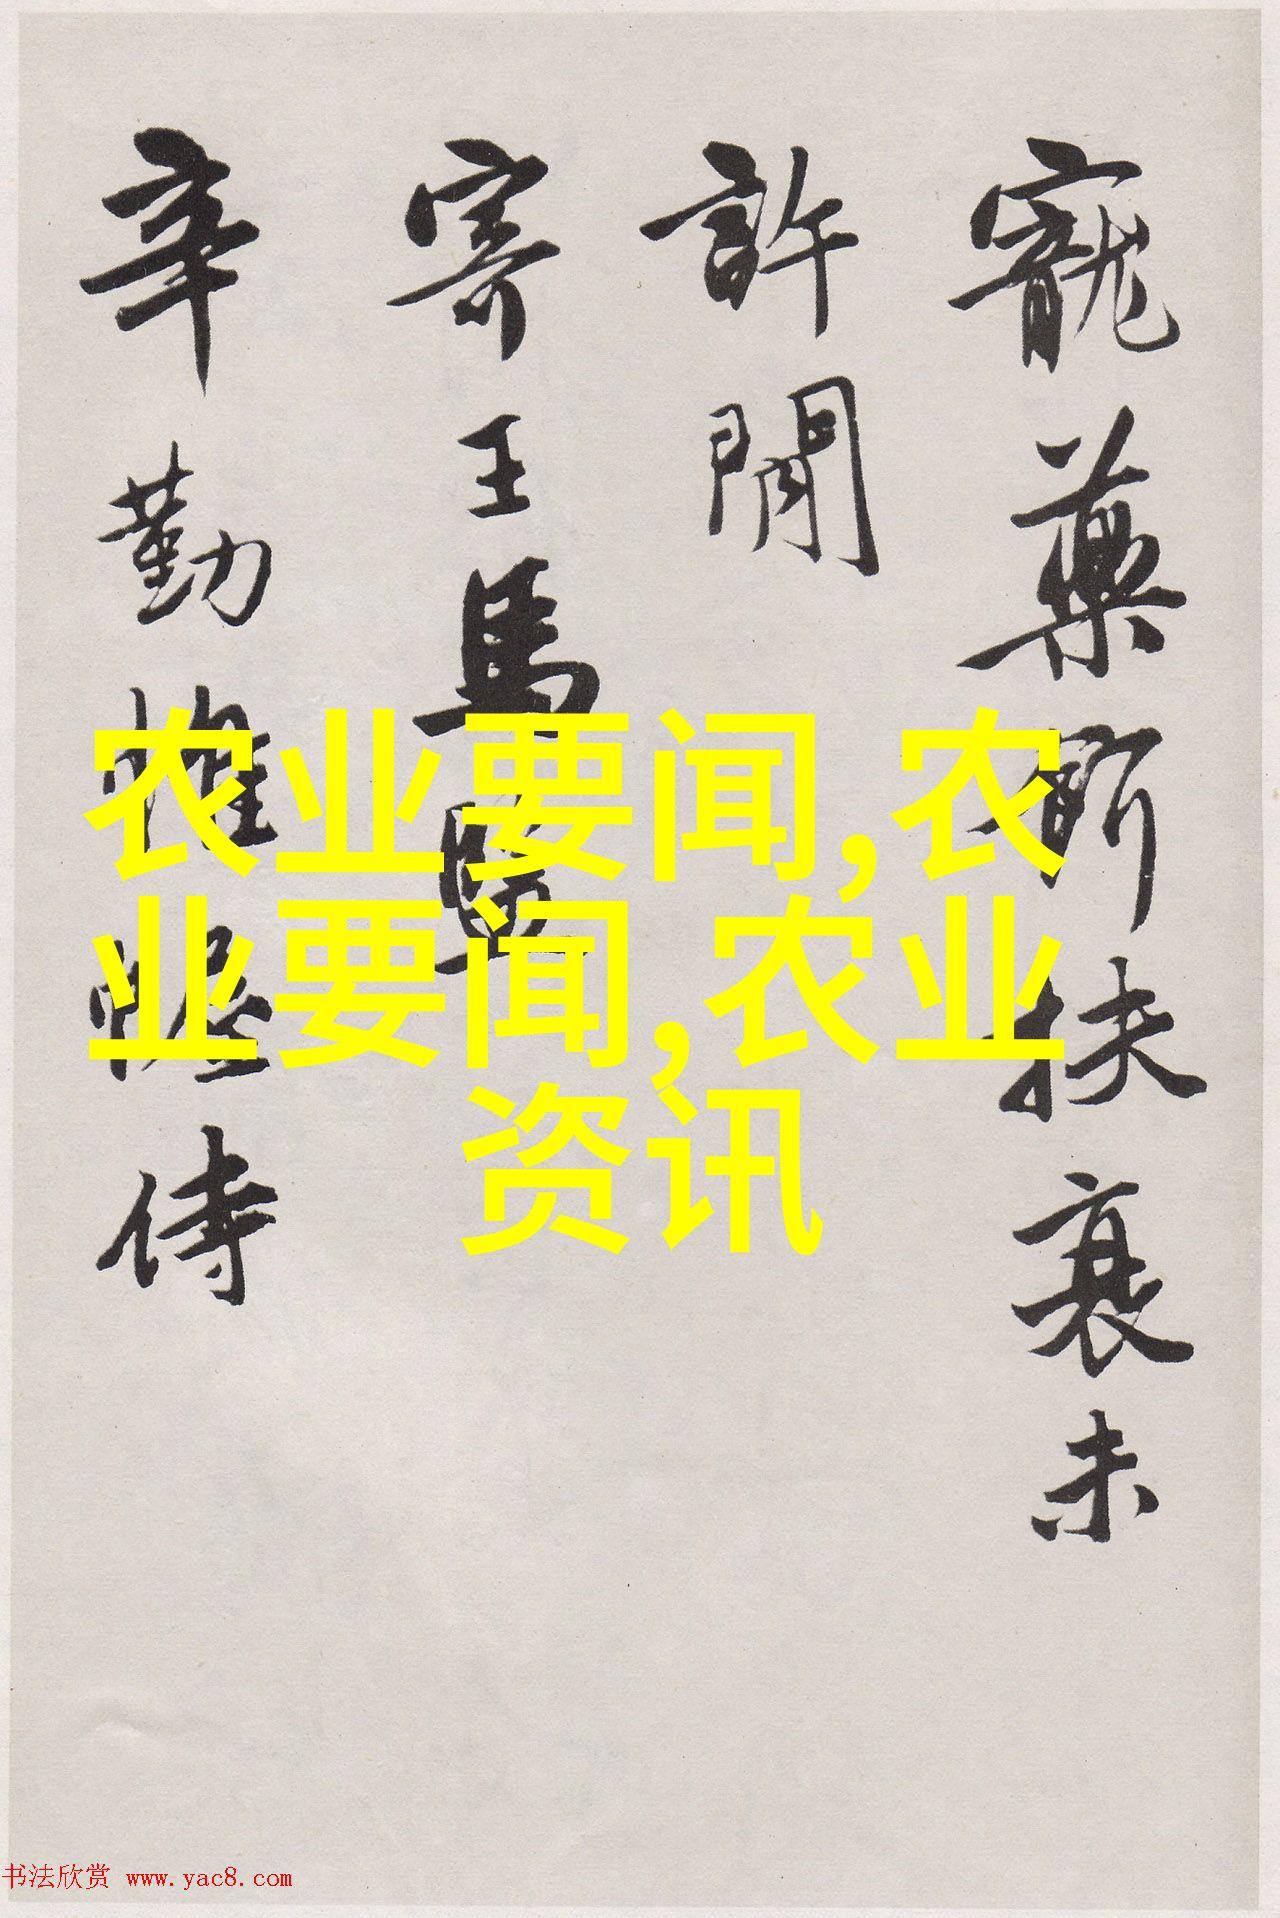 寵藥所扶衰未
許閒
寄王馬監
辛勤惟帳侍
农业要闻,农
业要闻,农业
资讯
书法欣赏 www.yac8.com